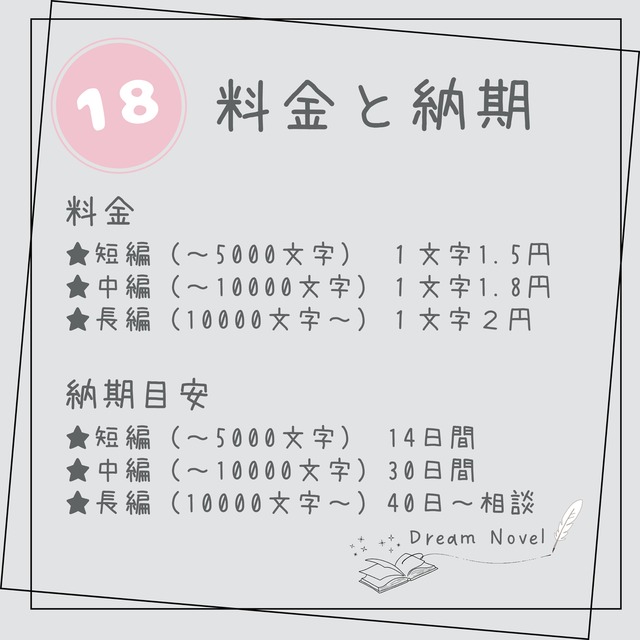 18
料金と納期
料金
★短編（～5000文字） 1文字1.5円
★中編（～10000文字）1文字1.8円
★長編（10000文字～）1文字2円
納期目安
★短編（～5000文字） 14日間
★中編（～10000文字）30日間
★長編（10000文字～）40日～相談
Dream Novel